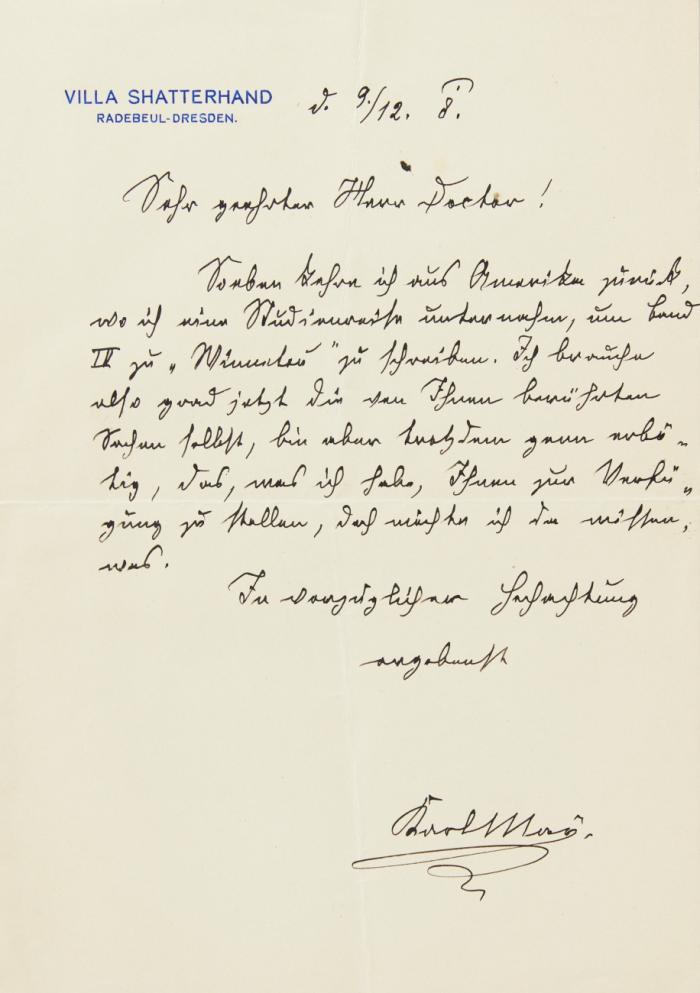 VILLA SHATTERHAND
RADEBEUL-DRESDEN.
d. 9./12. 8.
Sehr geehrter Herr Doctor!
Soeben kehre ich aus Amerika zurück,
wo ich eine Studienreise unternahm, um Band
IV zu „Winnetou" zu schreiben. Ich brauche
also grad jetzt die von Ihnen berührten
Sachen selbst, bin aber trotzdem gern erbö-
tig, das, was ich habe, Ihnen zur Verfü-
gung zu stellen, doch möchte ich da wissen,
was.
In vorzüglicher Hochachtung
ergebenst
Karl May.